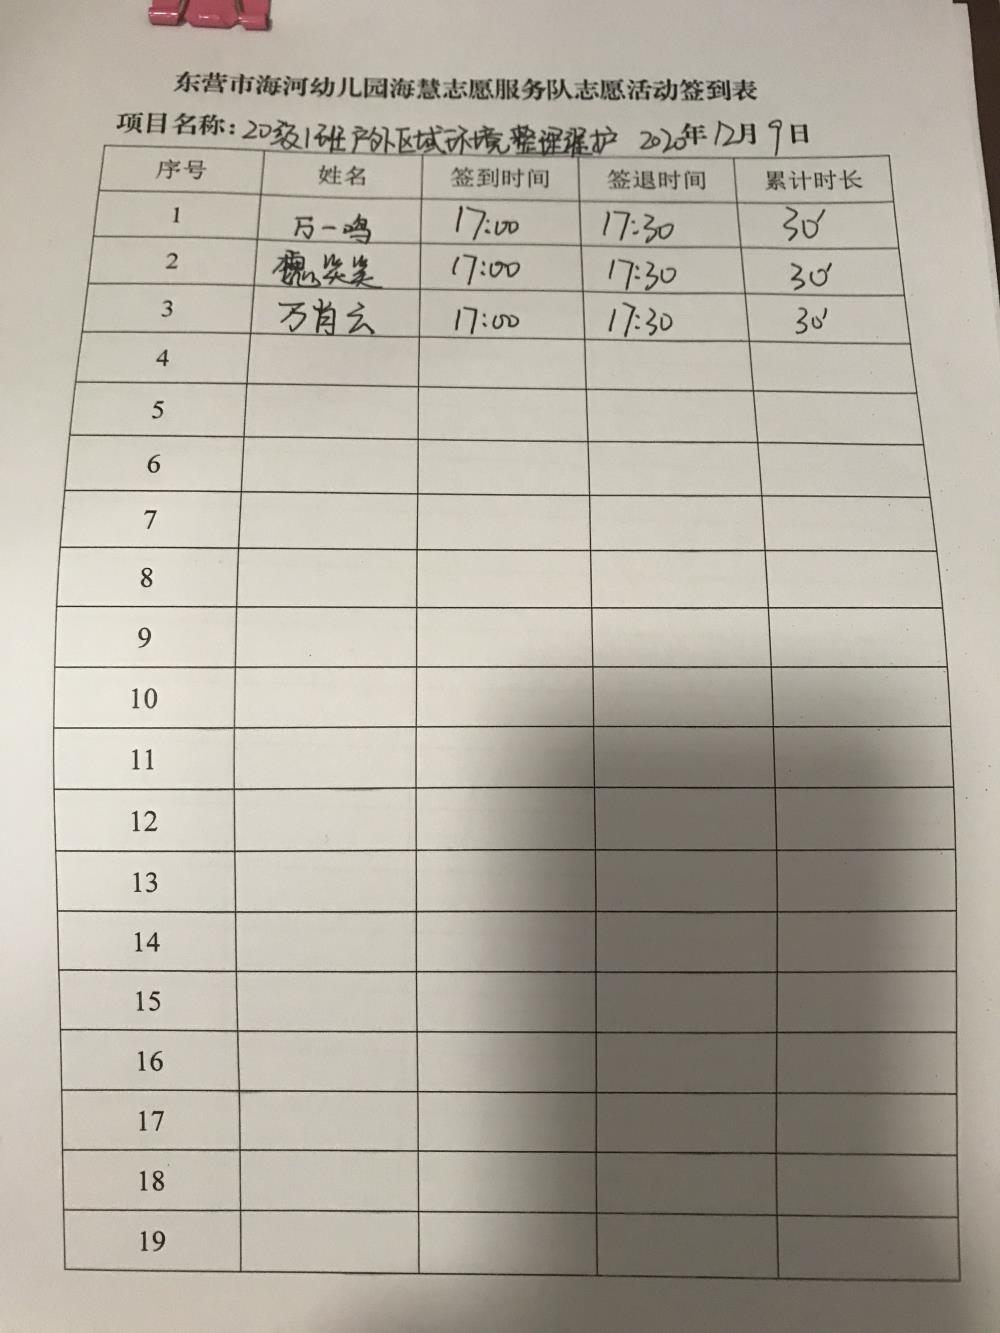 东营市海河幼儿园海慧志愿服务队志愿活动签到表
项目名称：20级1班户外区域环境整理维护 2020年12月9日
序号 姓名 签到时间 签退时间 累计时长
1 万一鸣 17:00 17:30 30'
2 魏笑笑 17:00 17:30 30'
3 万肖云 17:00 17:30 30'
4
5
6
7
8
9
10
11
12
13
14
15
16
17
18
19